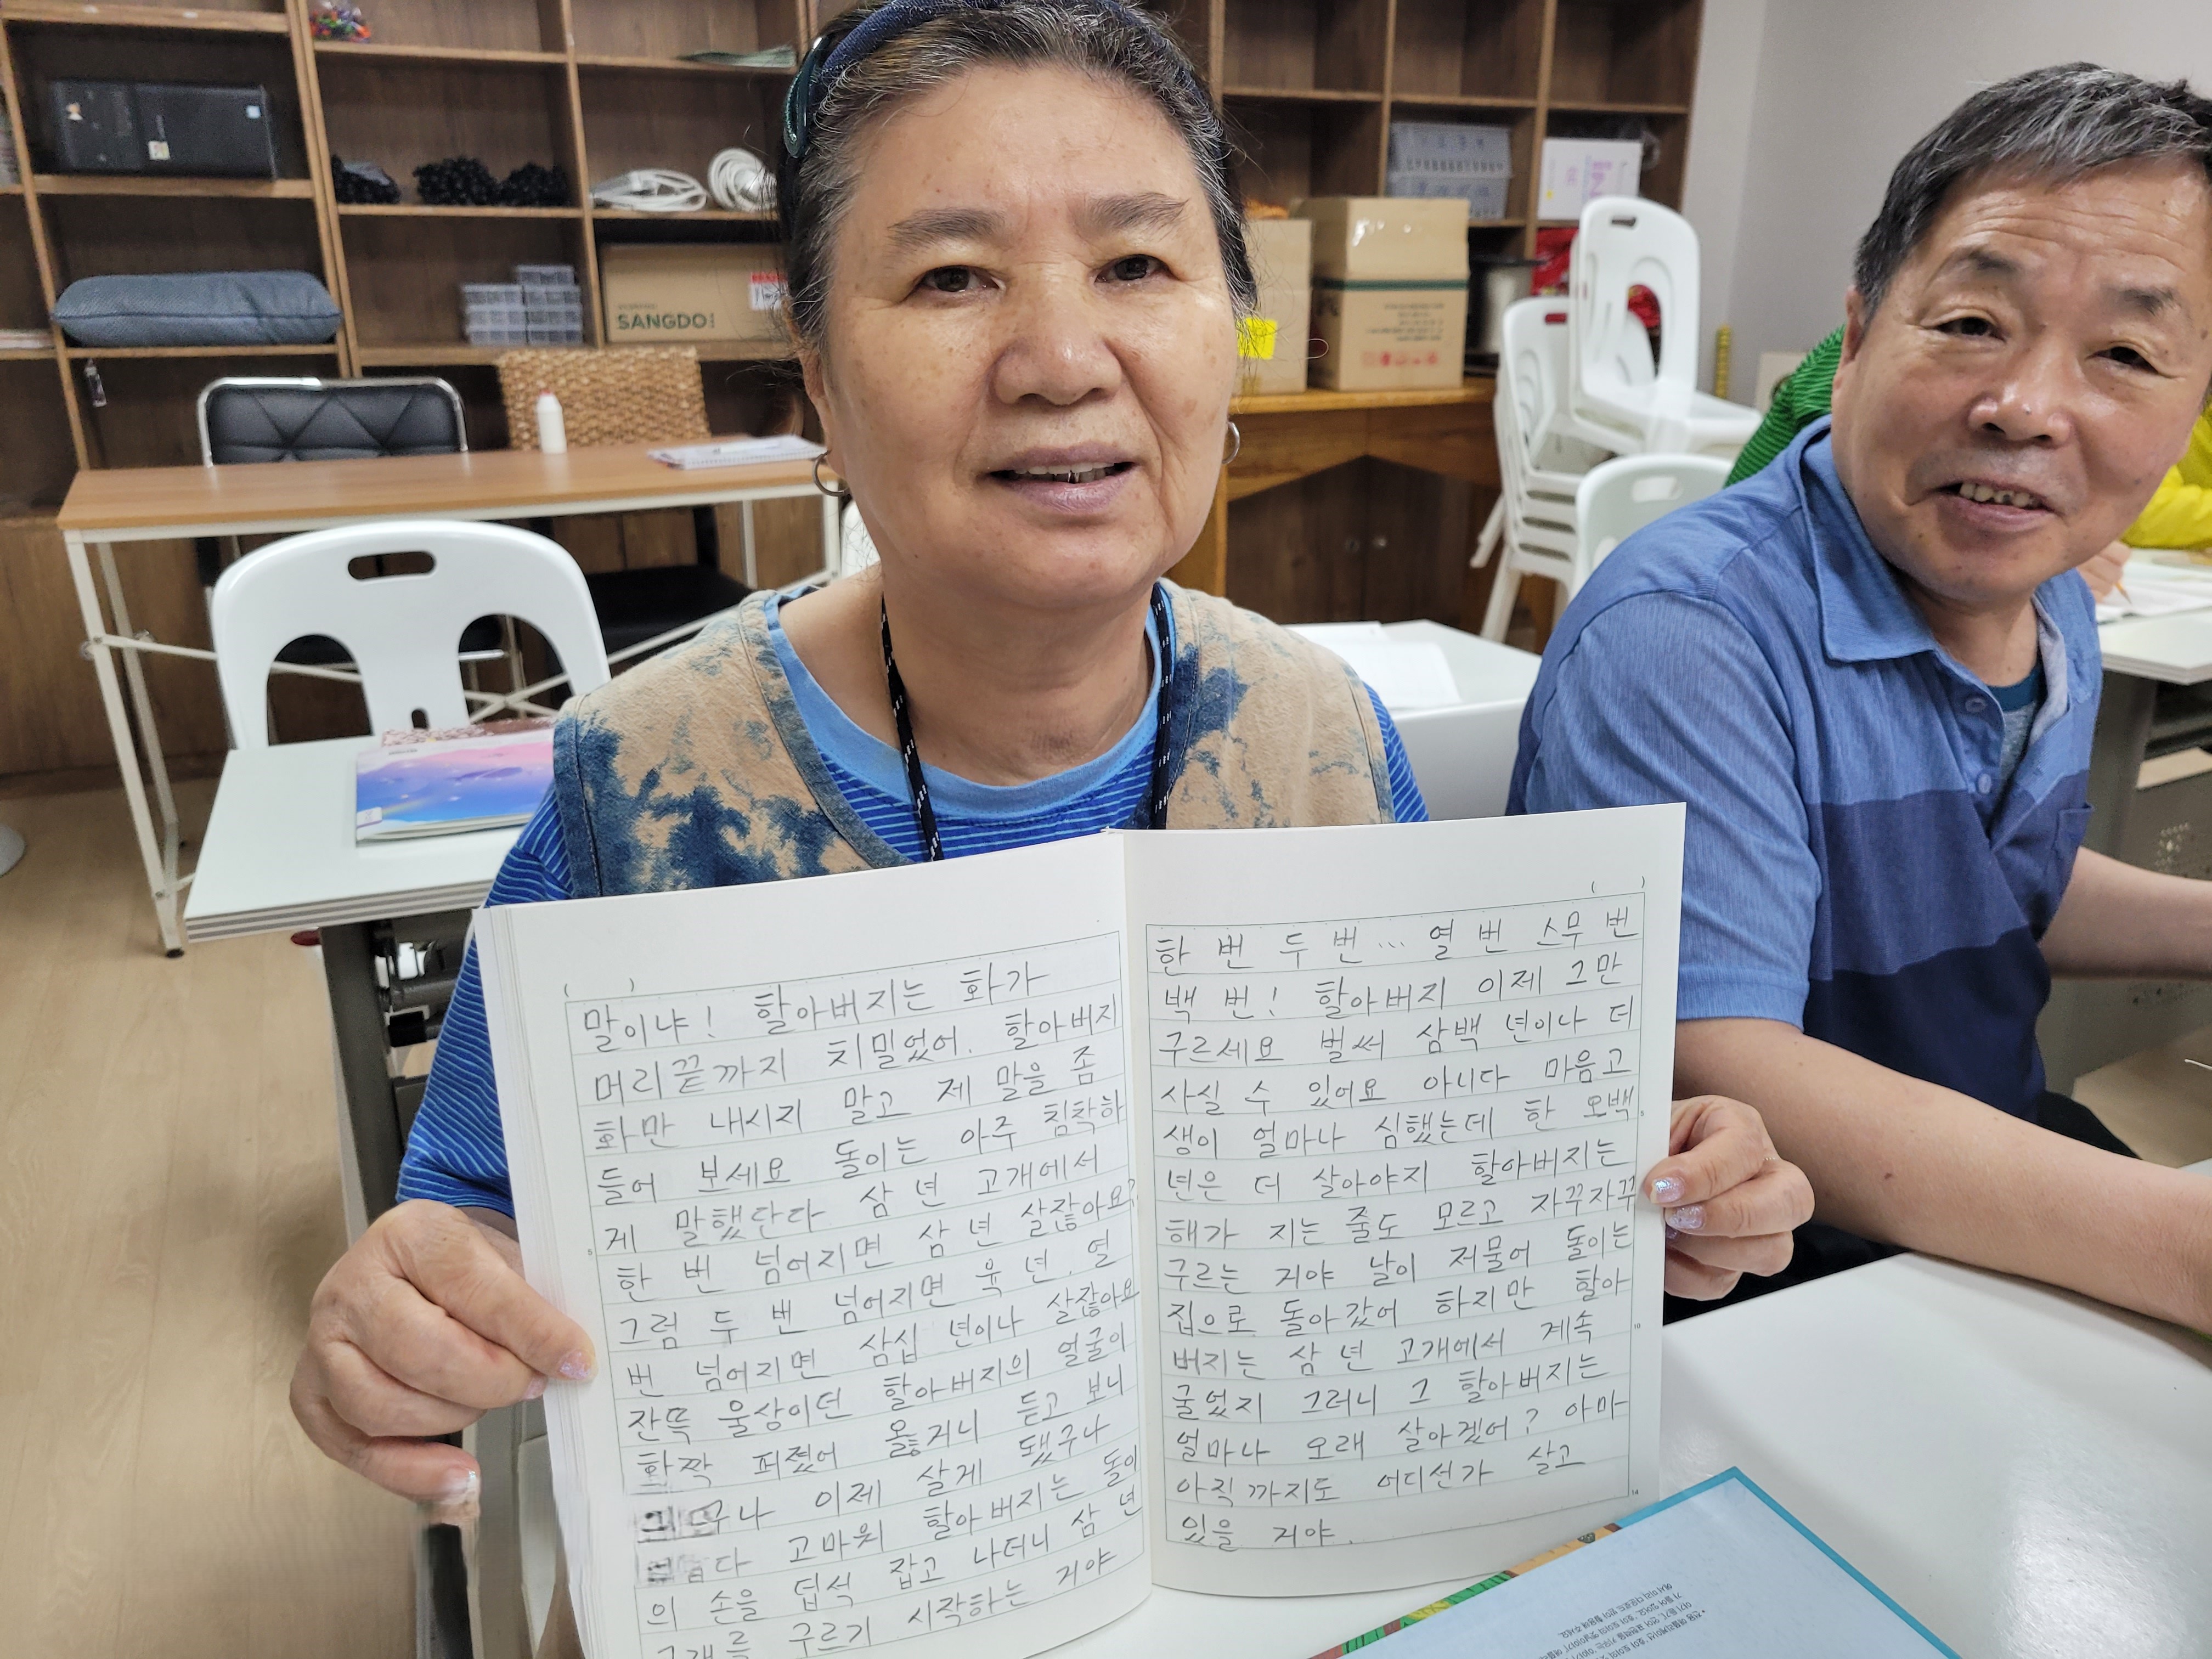 SANGDO
말이냐! 할아버지는 화가
머리끝까지 치밀었어. 할아버지
화만 내시지 말고 제 말을 좀
들어 보세요 돌이는 아주 침착하
게 말했단다 삼 년 고개에서
한 번 넘어지면 삼 년 살잖아요?
그럼 두 번 넘어지면 육 년. 열
번 넘어지면 삼십 년이나 살잖아요
잔뜩 울상이던 할아버지의 얼굴이
활짝 펴졌어 옳거니 듣고 보니
그렇구나 이제 살게 됐구나
다 고마워 할아버지는 돌이
의 손을 덥석 잡고 나더니 삼 년
고개를 구르기 시작하는 거야
한 번 두 번... 열 번 스무 번
백 번! 할아버지 이제 그만
구르세요 벌써 삼백 년이나 더
사실 수 있어요 아니다 마음고
생이 얼마나 심했는데 한 오백
년은 더 살아야지 할아버지는
해가 지는 줄도 모르고 자꾸자꾸
구르는 거야 날이 저물어 돌이는
집으로 돌아갔어 하지만 할아
버지는 삼 년 고개에서 계속
굴었지 그러니 그 할아버지는
얼마나 오래 살아겠어? 아마
아직까지도 어디선가 살고
있을 거야.